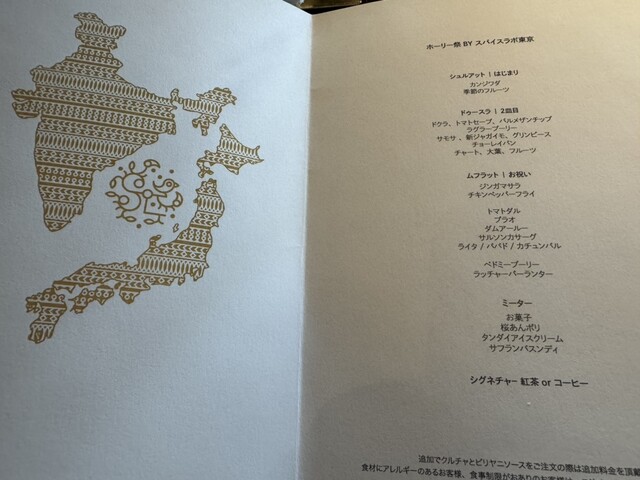 ホーリー祭 BY スパイスラボ東京
シュルアット | はじまり
カンジワダ
季節のフルーツ
ドゥースラ | 2皿目
ドクラ、トマトセーブ、パルメザンチップ
ラグラープーリー
サモサ 、新ジャガイモ、グリンピース
チョーレイパン
チャート、大葉、フルーツ
ムフラット | お祝い
ジンガマサラ
チキンペッパーフライ
トマトダル
プラオ
ダムアールー
サルソンカサーグ
ライタ / パパド / カチュンバル
ベドミープーリー
ラッチャーパーランター
ミーター
お菓子
桜あんポリ
タンダイアイスクリーム
サフランバスンディ
シグネチャー 紅茶 or コーヒー
追加でクルチャとビリヤニソースをご注文の際は追加料金を頂戴
食材にアレルギーのあるお客様、食事制限がおありのお客様は